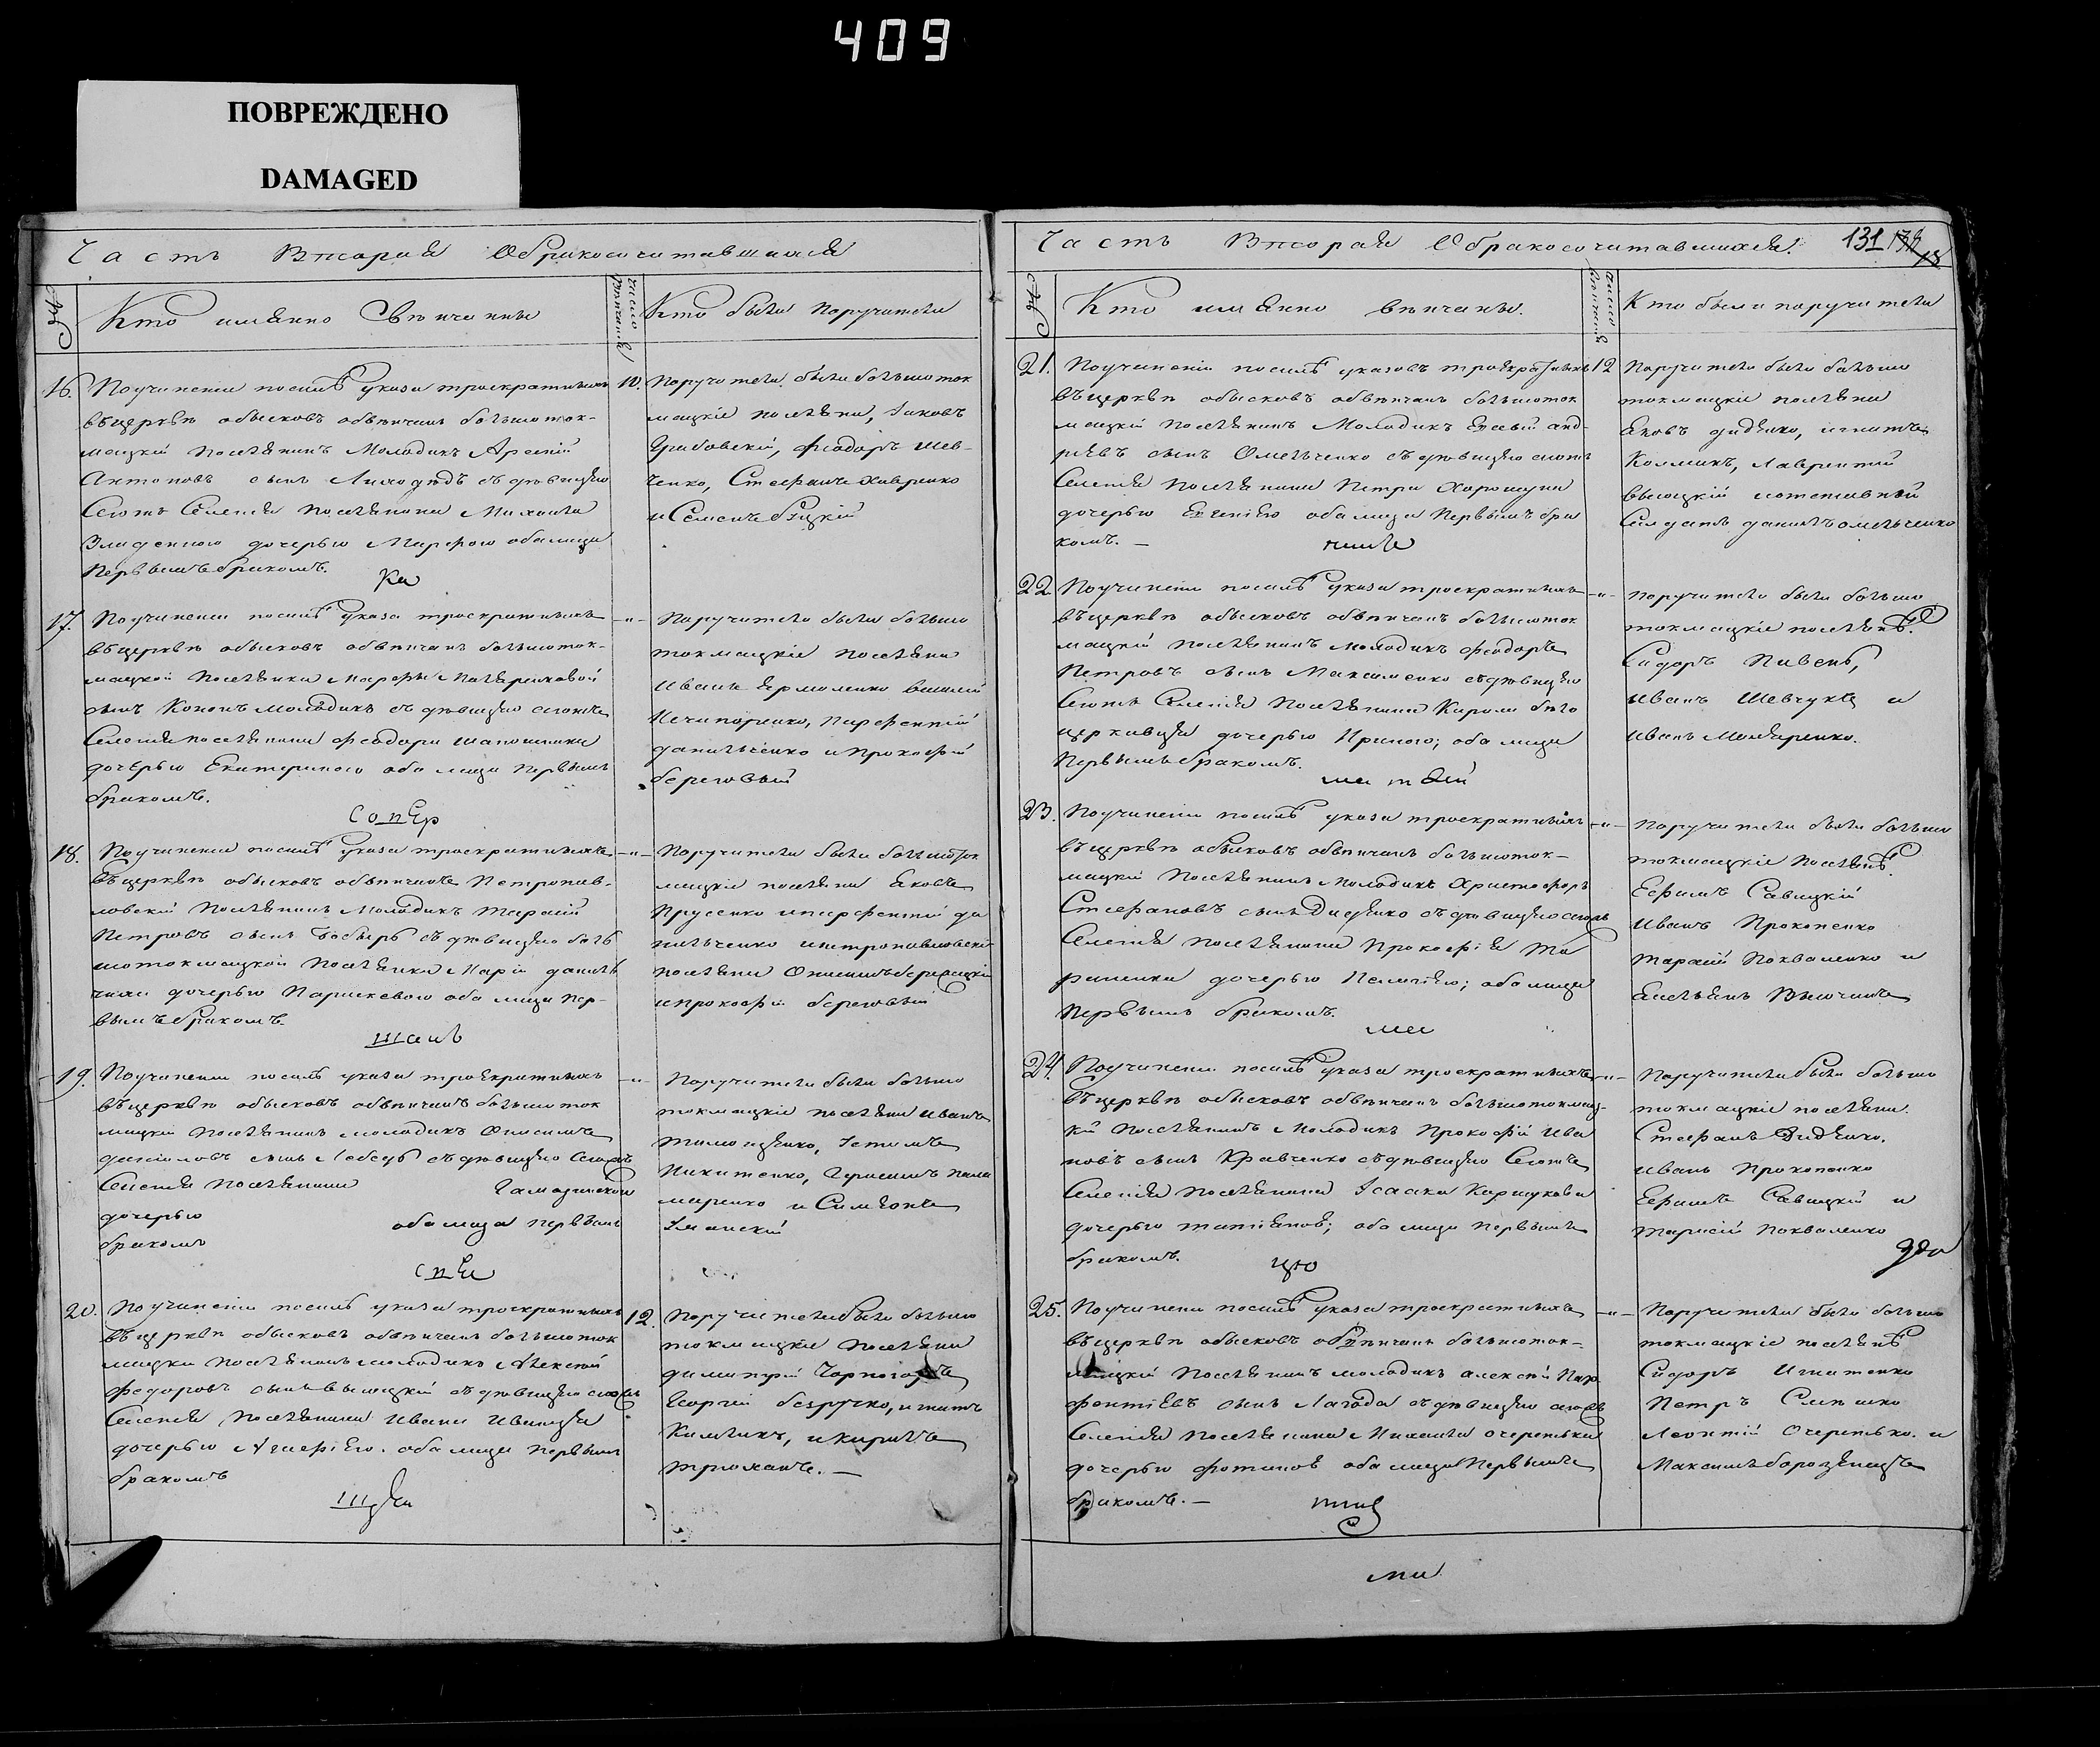 409
ПОВРЕЖДЕНО
DAMAGED
Часть Вторая Обракосочитавшихся
№ Кто имянно Вѣнчанны Число Вѣнчанія Кто были поручители
16. По учиненіи послѣ указа троекратныхъ 10.
въ церквѣ обысковъ обвѣнчанъ большоток-
мацкій поселянинъ Молодикъ Арсеній
Антоновъ сынъ съ дѣвицею
сегожъ Селенія поселянина Михаила
дочерью Марфою оба лица
первымъ бракомъ.
Поручители были большоток
мацкіе поселяне, Іаковъ
Грибовскій, Феодоръ Шев-
ченко, Стефанъ Хавренко
и Семенъ
17. По учиненіи послѣ указа троекратныхъ -"-
въ церквѣ обысковъ обвѣнчанъ большоток-
мацкой поселянки Марфы
сынъ Кононъ молодикъ съ дѣвицею сегожъ
Селенія поселянина Феодора Шапошника
дочерью Екатериною оба лица первымъ
бракомъ.
Поручители были большо
токмацкіе поселяне
Иванъ Ермоленко Василій
Нечипоренко, Парфентій
Данильченко и Прокофій
Береговый
18. По учиненіи послѣ указа троекратныхъ -"-
въ церквѣ обысковъ обвѣнчанъ Петропав-
ловскій поселянинъ молодикъ Тарасій
Петровъ сынъ Бобырь съ дѣвицею боль
шотокмацкой поселянки Маріи
дочерью Параскевою оба лица пер-
вымъ бракомъ.
Поручители были большоток
мацкіе поселяне Яковъ
Прусенко и Парфентій Да
нильченко и Петропавловскіе
поселяне
и Прокофій Береговый
19. По учиненіи послѣ указа троекратныхъ -"-
въ церквѣ обысковъ обвѣнчанъ большоток
мацкій поселянинъ молодикъ Онисимъ
Даніиловъ сынъ Лебедь съ дѣвицею сегожъ
Селенія поселянина
дочерью оба лица первымъ
бракомъ
Поручители были большо
токмацкіе поселяне Иванъ
Тимощенко,
Никитенко, Герасимъ Пана
маренко и Симеонъ
Уманскій
20. По учиненіи послѣ указа троекратныхъ 12.
въ церквѣ обысковъ обвѣнчанъ большоток
мацкій поселянинъ молодикъ Алексій
Федоровъ сынъ Высоцкій съ дѣвицею сегожъ
Селенія поселянина Ивана Иваница
дочерью Агафіею. оба лица первымъ
бракомъ
Поручители были большо
токмацкіе поселяне
Димитрій Чорногоръ
Георгій Безручко, Игнатъ
и Кирилъ
Трюханъ. —
Часть Вторая Обракосочитавшихся. 131
№ Кто имянно вѣнчаны. Число Вѣнчанія Кто были поручители
21. По учиненіи послѣ указовъ троекратныхъ 12
въ церквѣ обысковъ обвѣнчанъ большоток
мацкій поселянинъ Молодикъ Евсевій Анд-
реевъ сынъ Омельченко съ дѣвицею сегожъ
Селенія поселянина Петра Хорошуна
дочерью Евгеніею оба лица первымъ бра
комъ. —
Поручители были большо
токмацкіе поселяне
Яковъ Диденко, Игнатъ
Лаврентій
Высоцкій и отставный
Солдатъ Даніилъ Омельченко
22. По учиненіи послѣ указа троекратныхъ -"-
въ церквѣ обысковъ обвѣнчанъ большоток
мацкій поселянинъ молодикъ Феодоръ
Петровъ сынъ Максименко съ дѣвицею
сегожъ Селенія поселянина Карпа Бѣло
церковца дочерью Ириною; оба лица
первымъ бракомъ.
Поручители были большо
токмацкіе поселянѣ.
Сидоръ Пивень,
Иванъ Шевчукъ и
Иванъ
23. По учиненіи послѣ указа троекратныхъ -"-
въ церквѣ обысковъ обвѣнчанъ большоток-
мацкій поселянинъ молодикъ Христофоръ
Стефановъ сынъ Диденко съ дѣвицею сегожъ
Селенія поселянина Прокофія Та
раненка дочерью Пелагіею; оба лица
первымъ бракомъ.
Поручители были большо
токмацкіе поселянѣ.
Ефимъ Савицкій
Иванъ Прокопенко
Тарасій Похваленко и
Емельянъ
24. По учиненіи послѣ указа троекратныхъ -"-
въ церквѣ обысковъ обвѣнчанъ большотокмац-
кій поселянинъ молодикъ Прокофій Ива
новъ сынъ Кравченко съ дѣвицею сегожъ
Селенія поселянина Ісаака Каршукова
дочерью Татіаною; оба лица первымъ
бракомъ.
Поручители были большо
токмацкіе поселяне.
Стефанъ Диденко.
Иванъ Прокопенко
Ефимъ Савицкій и
Тарасій Похваленко
25. По учиненіи послѣ указа троекратныхъ -"-
въ церквѣ обысковъ обвѣнчанъ большоток-
мацкій поселянинъ молодикъ Алексій Пар
фентіевъ сынъ Лагода съ дѣвицею сегожъ
Селенія поселянина Михаила Очеретька
дочерью Фотиною оба лица первымъ
бракомъ. —
Поручители были большо
токмацкіе поселянѣ
Сидоръ Игнатенко
Петръ Слѣпко
Леонтій Очеретько. и
Максимъ